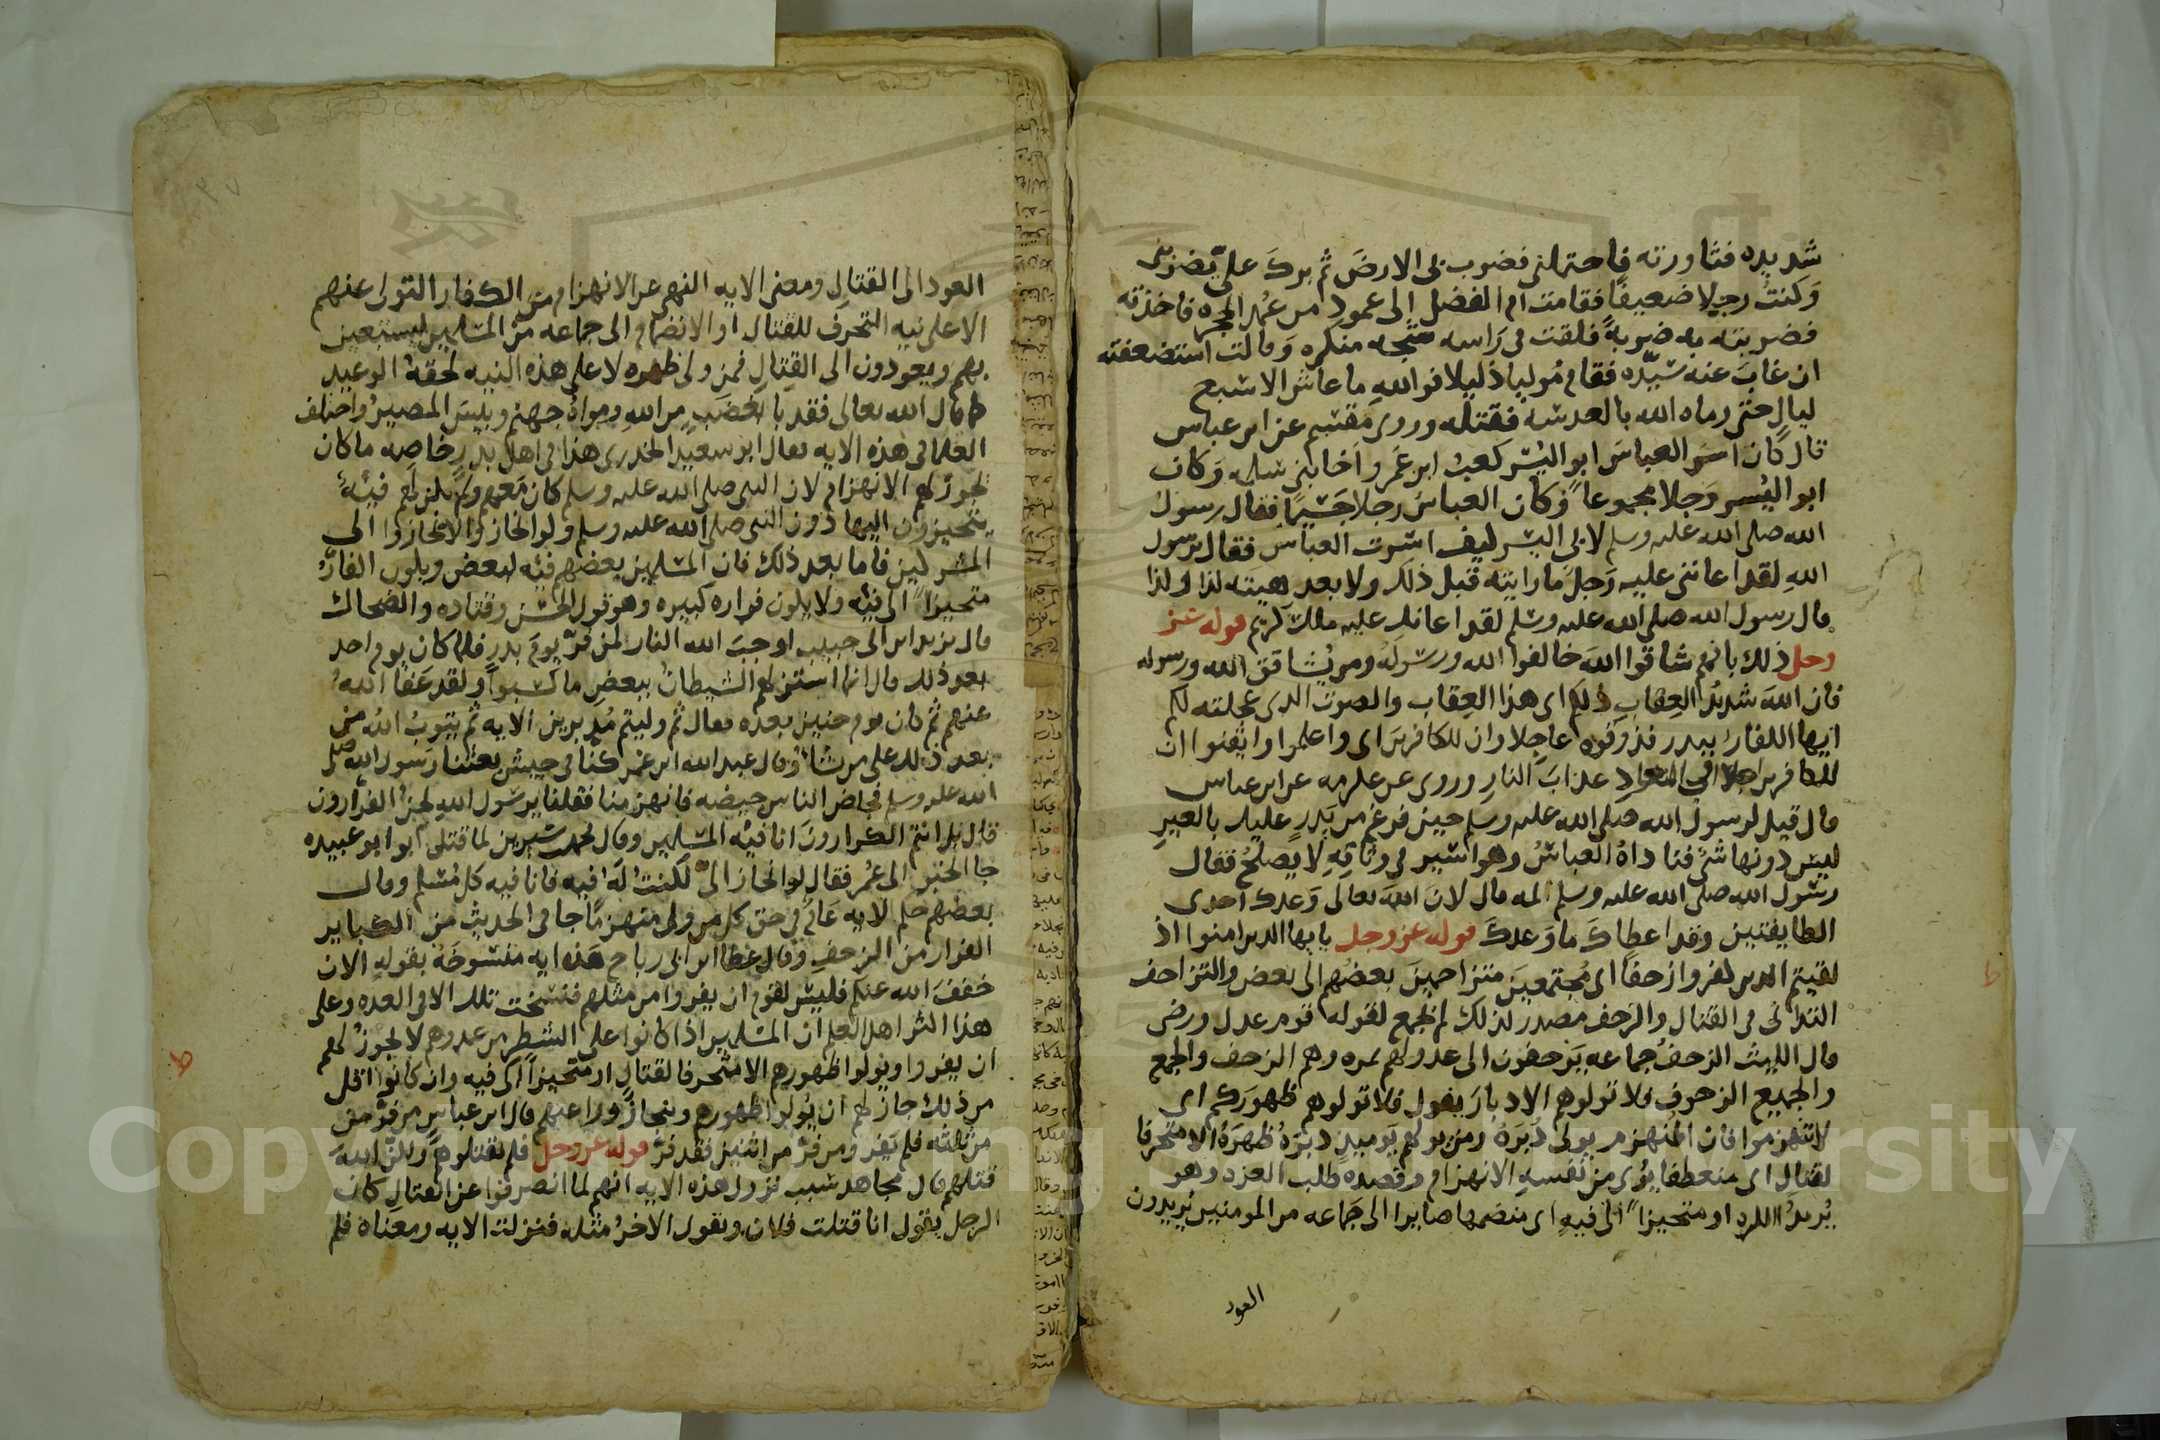 شديده فثاورته فاحتملني فضرب بي الارض ثم برك علي يضربني
وكنت رجلا ضعيفا فقامت ام الفضل الى عمود من عمد الحجره فاخذته
فضربته به ضربة فلقت في راسه شجه منكره وقالت استضعفته
ان غاب عنه سيده فقام موليا ذليلا فوالله ما عاش الا سبع
ليال حتى رماه الله بالعدسه فقتله وروى مقسم عن ابن عباس
قال كان اسر العباس ابو اليسر كعب ابن عمرو اخا بني سلمه وكان
ابو اليسر رجلا مجموعا وكان العباس رجلا جسيما فقال رسول
الله صلى الله عليه وسلم لابي اليسر كيف اسرت العباس فقال يرسول
الله لقد اعانني عليه رجل ما رايته قبل ذلك ولا بعد هيئته كذا وكذا
قال رسول الله صلى الله عليه وسلم لقد اعانك عليه ملك كريم قوله عز
وجل ذلك بانهم شاقوا الله خالفوا الله ورسوله ومن يشاقق الله ورسوله
فان الله شديد العقاب ذلكم اى هذا العقاب والضرب الذي عجلته لكم
ايها الكفار ببدر فذوقوه عاجلا وان للكافرين اى واعلموا وايقنوا ان
للكافرين اجلا في المعاد عذاب النار وروى عن عكرمه عن ابن عباس
قال قيل لرسول الله صلى الله عليه وسلم حين فرغ من بدر عليك بالعير
ليس دونها شي فناداه العباس وهو اسير في وثاقه لا يصلح فقال
رسول الله صلى الله عليه وسلم لمه قال لان الله تعالى وعدك احدى
الطايفتين وقد اعطاك ما وعدك قوله عز وجل يا يها الذين امنوا اذا
لقيتم الذين كفروا زحفا اى مجتمعين متزاحمين بعضهم الى بعض والتزاحف
التدانى فى القتال والزحف مصدر لذلك لم يجمع لقوله قوم عدل ورضى
قال الليث الزحف جماعه يزحفون الى عدو لهم بمره وهم الزحف والجمع
والجميع الزحوف فلا تولوهم الادبار يقول فلا تولوهم ظهوركم اى
لا تنهزموا فان المنهزم يولى دبره ومن يولهم يوميذ دبره ظهره الا متحرفا
لقتال اى منعطفا يرى من نفسه الانهزام وقصده طلب العزه وهو
يريد الكره او متحيزا الى فيه اى منضما صايرا الى جماعه من المومنين يريدون
العود
العود الى القتال ومعنى الايه النهى عن الانهزام من الكفار التولى عنهم
الا على نيه التحرف للقتال او الانضمام الى جماعه من المسلمين ليستعين
بهم ويعودون الى القتال فمن ولى ظهره لا على هذه النيه لحقه الوعيد
كما قال الله تعالى فقد با بغضب من الله وماواه جهنم وبيس المصير واختلف
العلما في هذه الايه فقال ابو سعيد الخدري هذا في اهل بدر خاصه ما كان
يجوز لهم الانهزام لان النبي صلى الله عليه وسلم كان معهم ولم يكن لهم فيئة
يتحيزون اليها دون النبي صلى الله عليه وسلم ولو انحازوا لانحازوا الى
المشركين فاما بعد ذلك فان المسلمين بعضهم فيه لبعض ويكون الفار
متحيزا الى فيئه ولا يكون فراره كبيره وهو قول الحسن وقتاده والضحاك
قال يزيد ابن ابى حبيب اوجب الله النار لمن فر يوم بدر فلما كان يوم احد
بعد ذلك قال انما استزلهم الشيطان ببعض ما كسبوا ولقد عفا الله
عنهم ثم كان يوم حنين بعده فقال ثم وليتم مدبرين الايه ثم يتوب الله من
بعد ذلك على من يشا وقال عبد الله ابن عمر كنا في جيش بعثنا رسول الله صلى
الله عليه وسلم فحاص الناس حيصه فانهزمنا فقلنا يرسول الله نحن الفرارون
قال بل انتم الكرارون انا فيه المسلمين وقال محمد بن سيرين لما قتل ابو ابو عبيده
جا الخبر الى عمر فقال لو انحاز الى لكنت له فيه فانا فيه كل مسلم وقال
بعضهم حكم الايه عام في حق كل من ولى منهزما جا في الحديث من الكباير
الفرار من الزحف وقال عطا ابن ابى رباح هذه ايه منسوخه بقوله الان
خفف الله عنكم فليس لقوم ان يفروا من مثلهم فنسخت تلك الا في العده وعلى
هذا اكثر اهل العلم ان المسلمين اذا كانوا على الشطر من عدوهم لا يجوز لهم
ان يفروا ويولوا ظهورهم الا متحرفا لقتال او متحيزا الى فيه وان كانوا اقل
من ذلك جاز لهم ان يولوا ظهورهم وينحازوا عنهم قال ابن عباس من فر من
من ثلثه فلم يفر ومن فر من اثنين فقد فر قوله عز وجل فلم تقتلوهم ولكن الله
قتلهم قال مجاهد سبب نزول هذه الايه انهم لما انصرفوا عن القتال كان
الرجل يقول انا قتلت فلان ويقول الاخر مثله فنزلت الايه ومعناه فلم